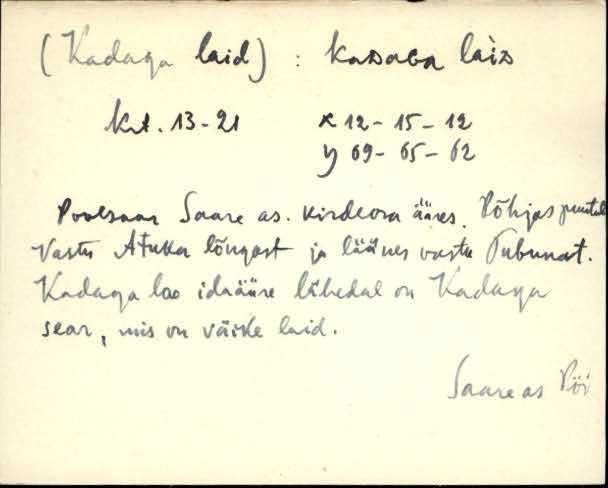 (Kadaga laid) : kaᴅaɢa laìᴅ
Krt. 13-21 x 12 - 15 - 12
y 69 - 65 - 62
Poolsaar Saare as. kirdeosa ääres. Põhjas puutub
vastu Atuka lõugast ja läänes vastu Tubunat.
Kadaga lao idaääre lähedal on Kadaga
sear, mis on väike laid.
Saare as Pöi